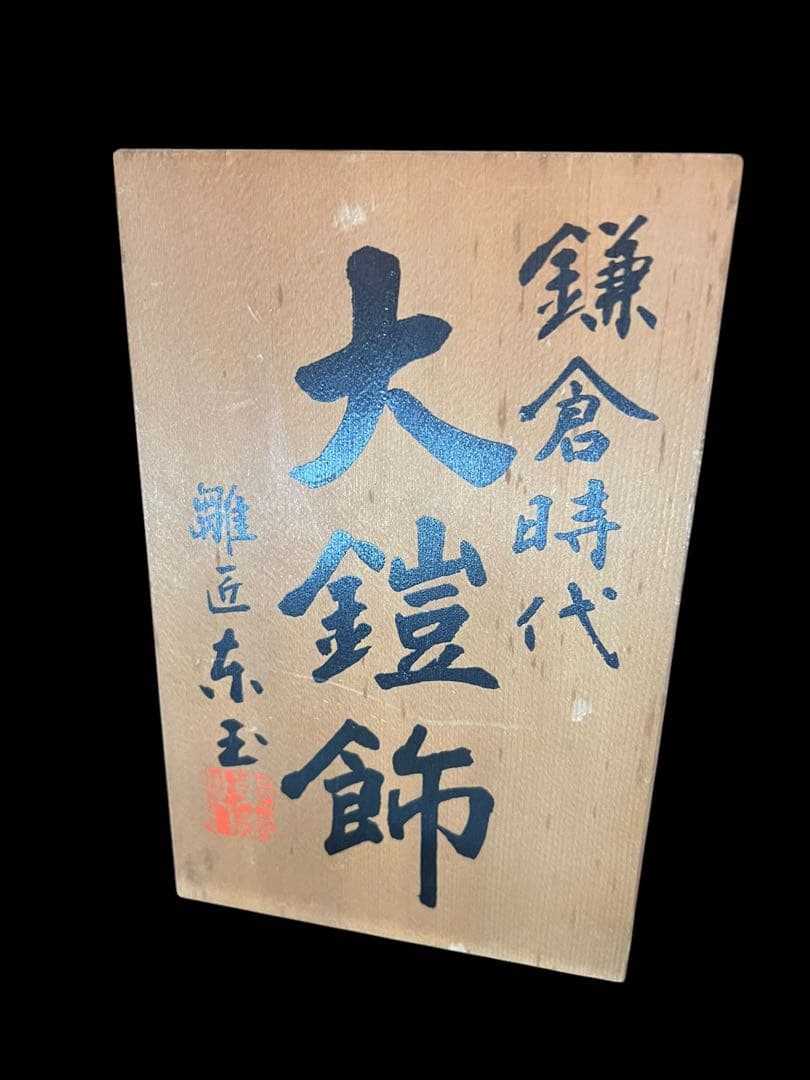 鎌倉時代
大鎧飾
雛匠東玉